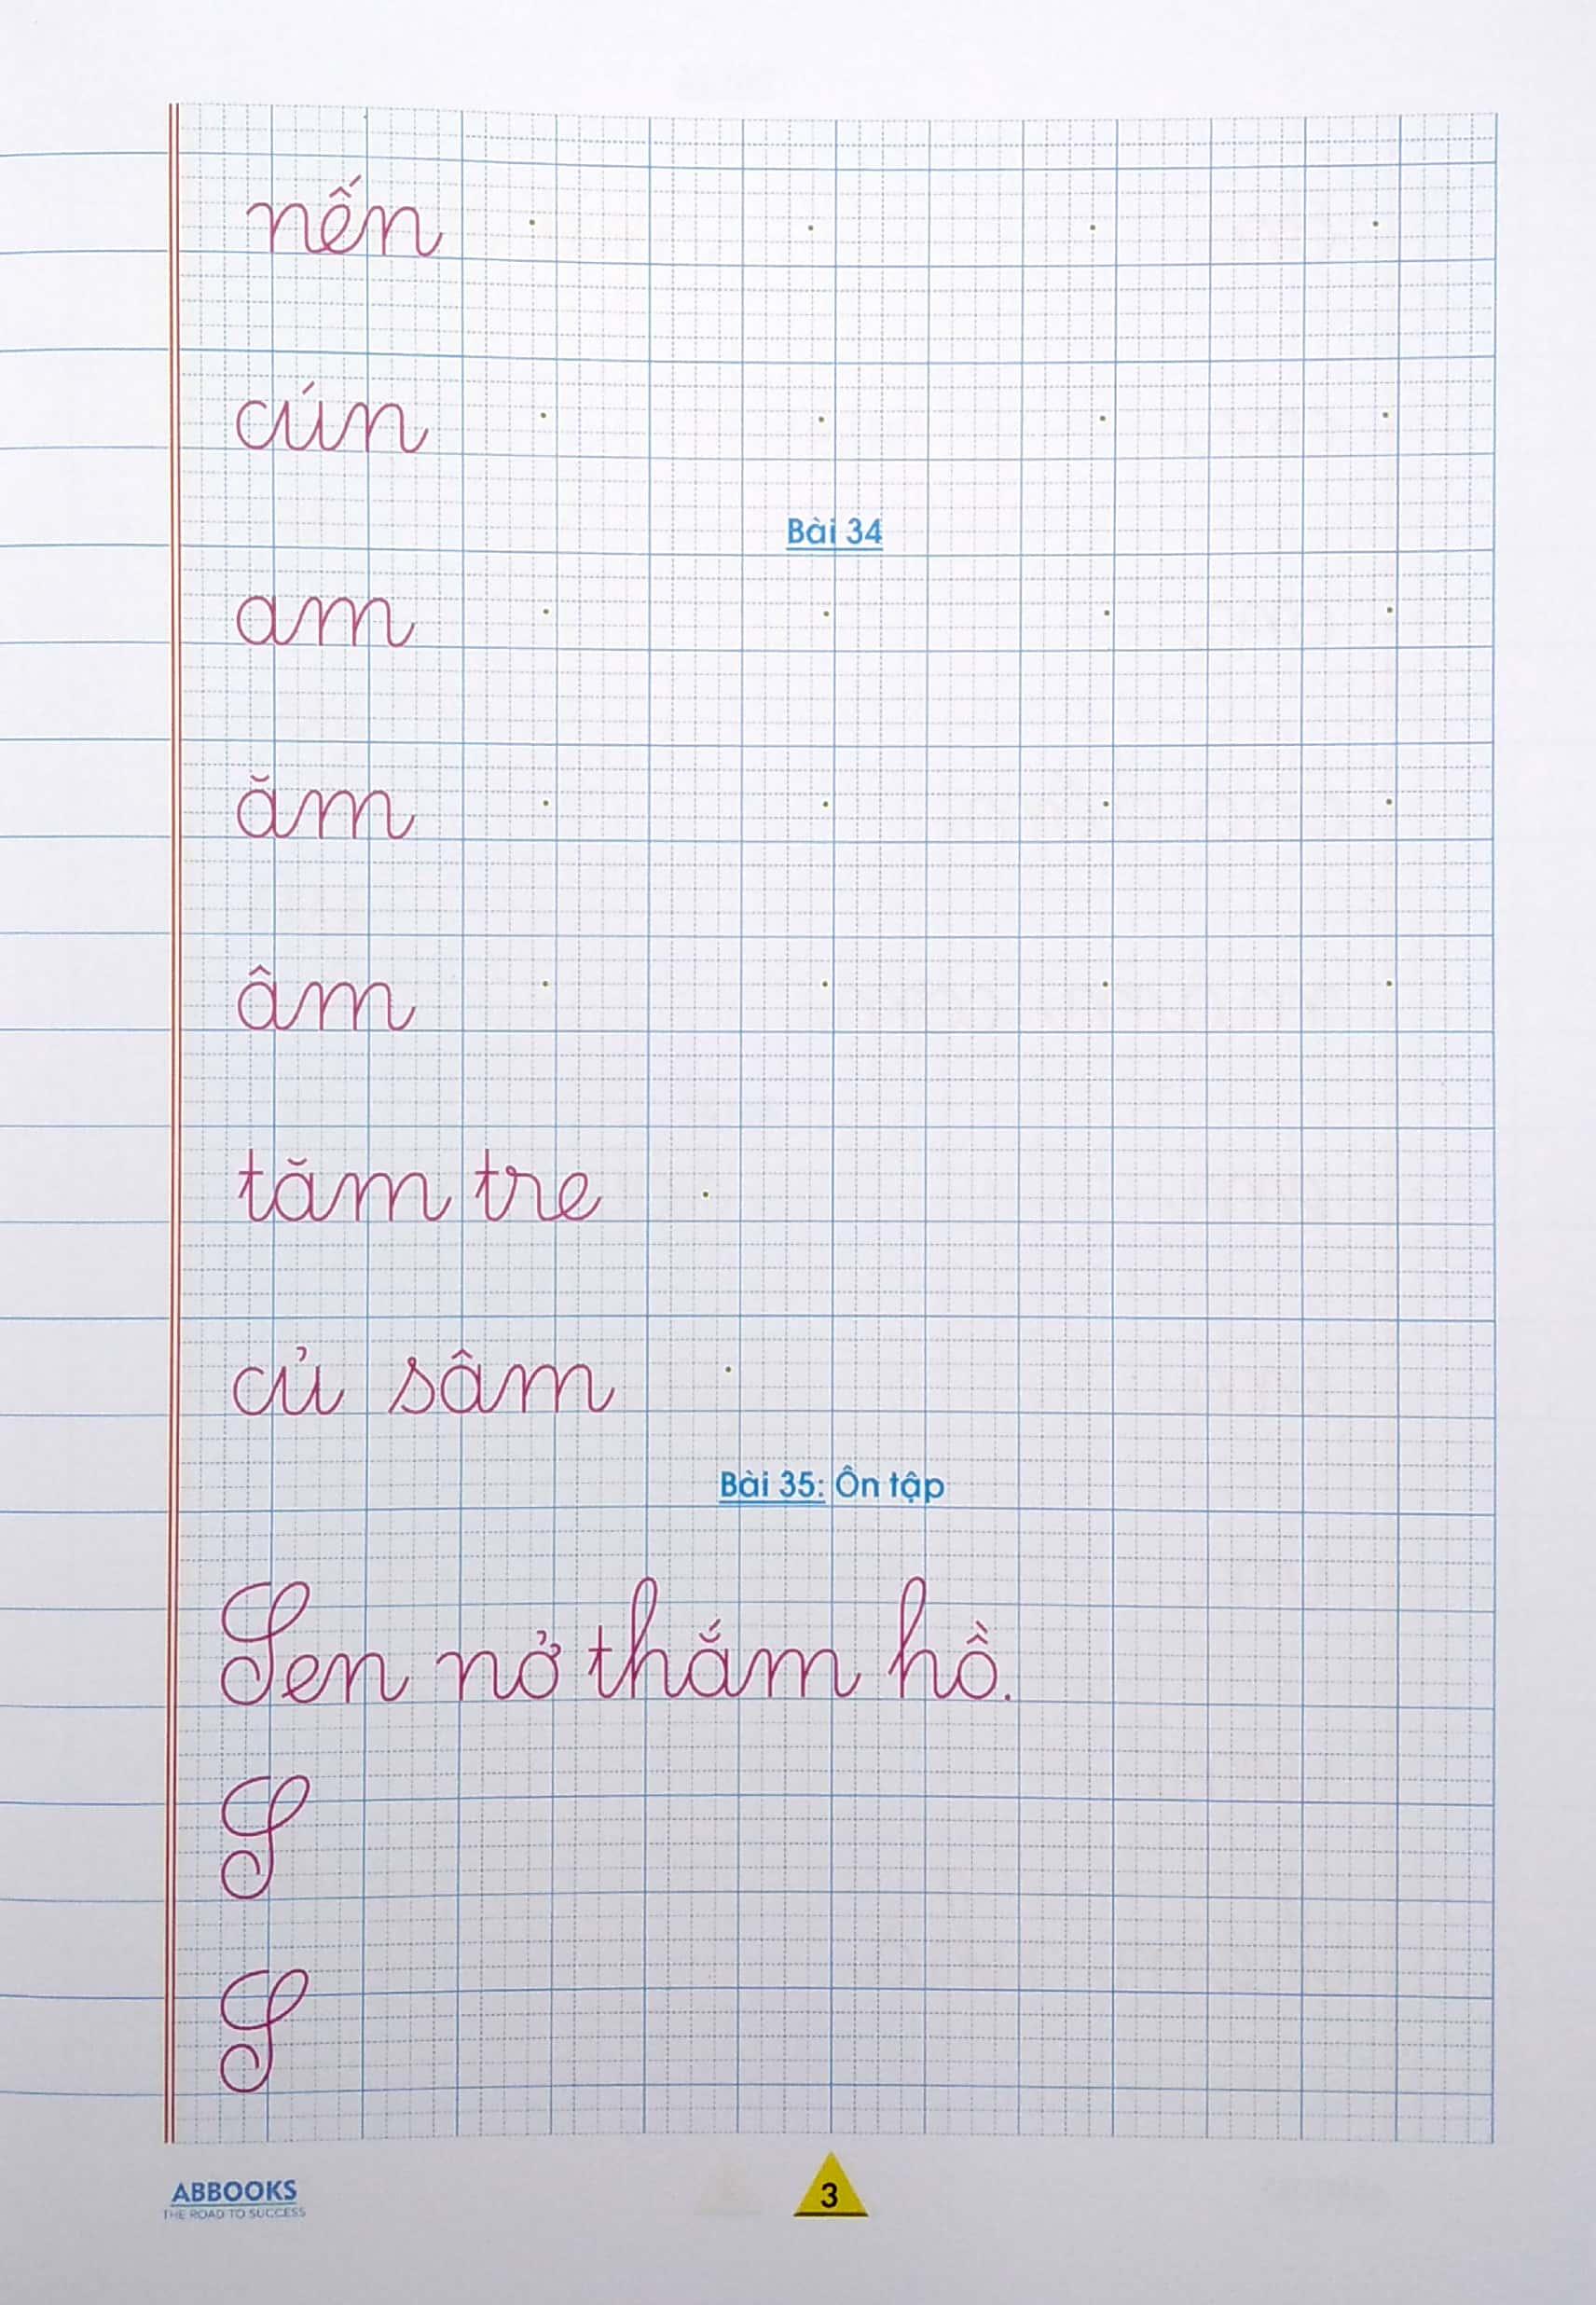 nến
cún
Bài 34
am
ăm
âm
tăm tre
củ sâm
Bài 35: Ôn tập
Sen nở thắm hồ.
S
S
ABBOOKS
THE ROAD TO SUCCESS
3